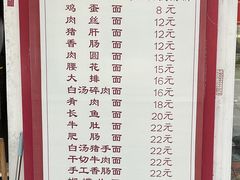 鸡蛋面 8元
肉丝面 12元
猪肝面 12元
香肠面 12元
肉圆面 13元
腰花面 15元
大排面 16元
白汤碎肉面 16元
肴肉面 18元
长鱼面 20元
牛肚面 22元
肥肠面 22元
白汤猪手面 22元
干切牛肉面 22元
手工香肠面 22元